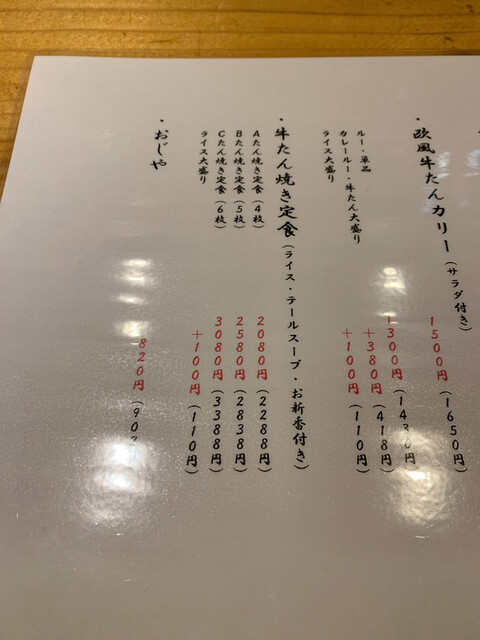 ・欧風牛たんカリー(サラダ付き) 1500円(1650円)
ルー・単品 1300円(1430円)
カレールー・牛たん大盛り +380円(418円)
ライス大盛り +100円(110円)
・牛たん焼き定食(ライス・テールスープ・お新香付き)
Aたん焼き定食(4枚) 2080円(2288円)
Bたん焼き定食(5枚) 2580円(2838円)
Cたん焼き定食(6枚) 3080円(3388円)
ライス大盛り +100円(110円)
・おじや 820円(902